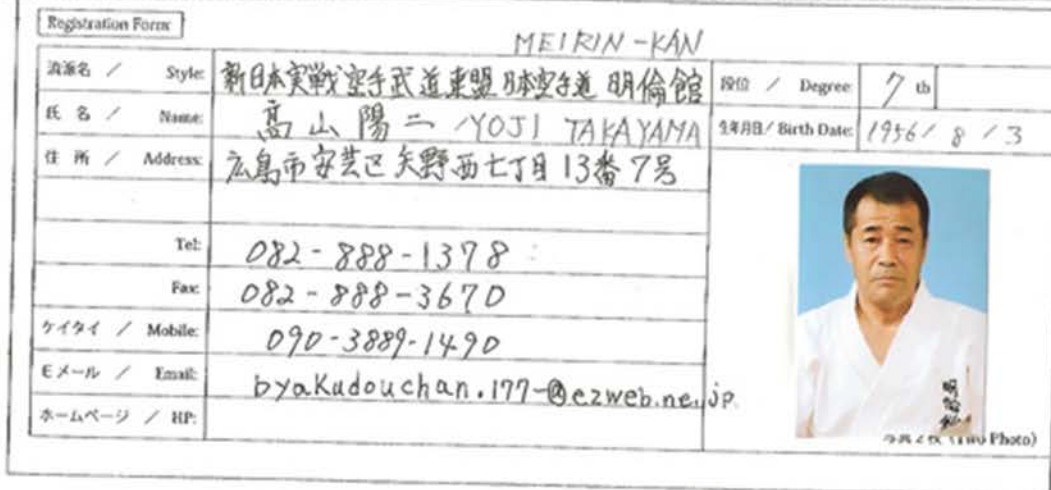 Registration Form
MEIRIN-KAN
流派名 / Style: 新日本実戦空手武道連盟 日本空手道 明倫館 段位 / Degree: 7 th
氏 名 / Name: 高山陽二 /YOJI TAKAYAMA 生年月日/ Birth Date: 1956/8/3
住 所 / Address: 広島市安芸区矢野西七丁目13番7号
Tel: 082-888-1378
Fax: 082-888-3670
ケイタイ / Mobile: 090-3889-1490
Eメール / Email: byakudouchan.177-@ezweb.ne.jp.
ホームページ / HP:
明倫館
写真2枚 (Two Photo)